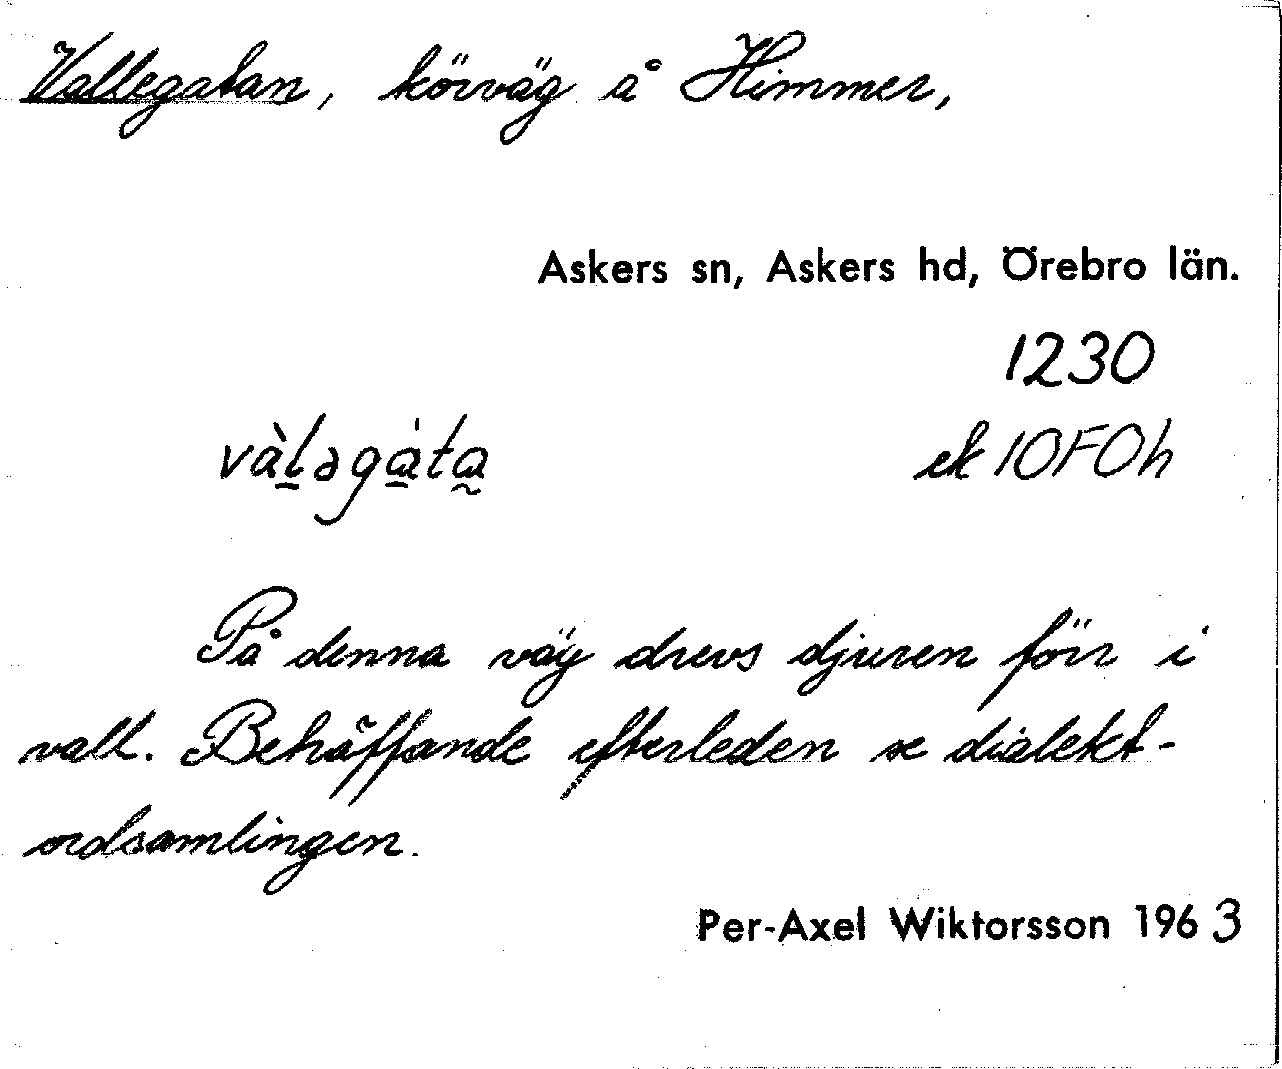 Vallegatan, körväg å Himmer,
Askers sn, Askers hd, Örebro län.
1230
vàl̠əga̠ta̰ ek 10F0h
På denna väg drevs djuren förr i
vall. Beträffande efterleden se dialekt-
ordsamlingen.
Per-Axel Wiktorsson 1963